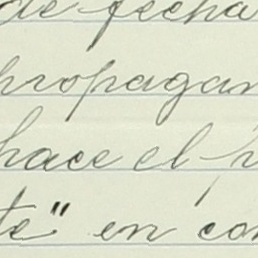 de fecha
propagan
hace el p
te" en con